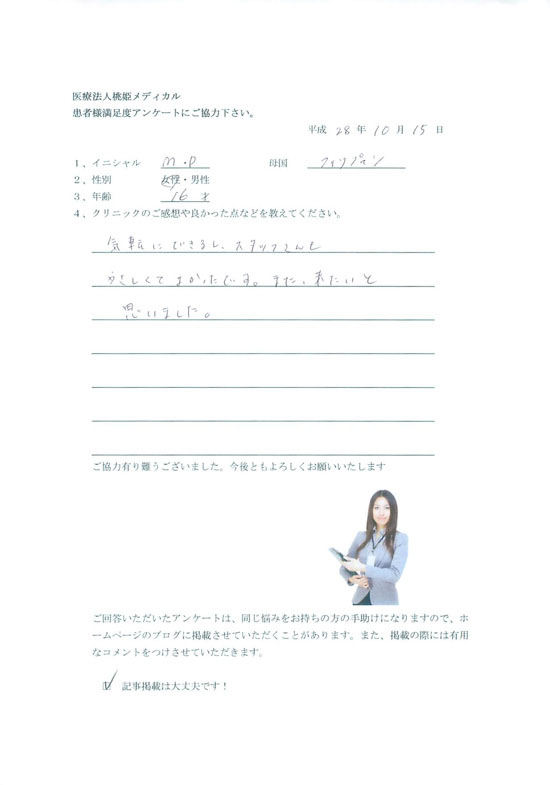 医療法人桃姫メディカル
患者様満足度アンケートにご協力下さい。
平成 28 年 10 月 15 日
1、イニシャル M.P 母国 フィリピン
2、性別 女性・男性
3、年齢 16 才
4、クリニックのご感想や良かった点などを教えてください。
気転にできるし、スタッフさんも
やさしくてよかったです。また、来たいと
思いました。
ご協力有り難うございました。今後ともよろしくお願いいたします
ご回答いただいたアンケートは、同じ悩みをお持ちの方の手助けになりますので、ホ
ームページのブログに掲載させていただくことがあります。また、掲載の際には有用
なコメントをつけさせていただきます。
記事掲載は大丈夫です！